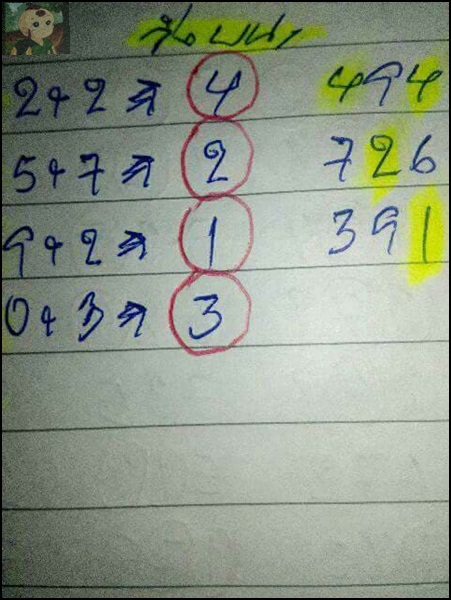 วิ่งบน
2+2 ⇒ 4 494
5+7 ⇒ 2 726
9+2 ⇒ 1 391
0+3 ⇒ 3